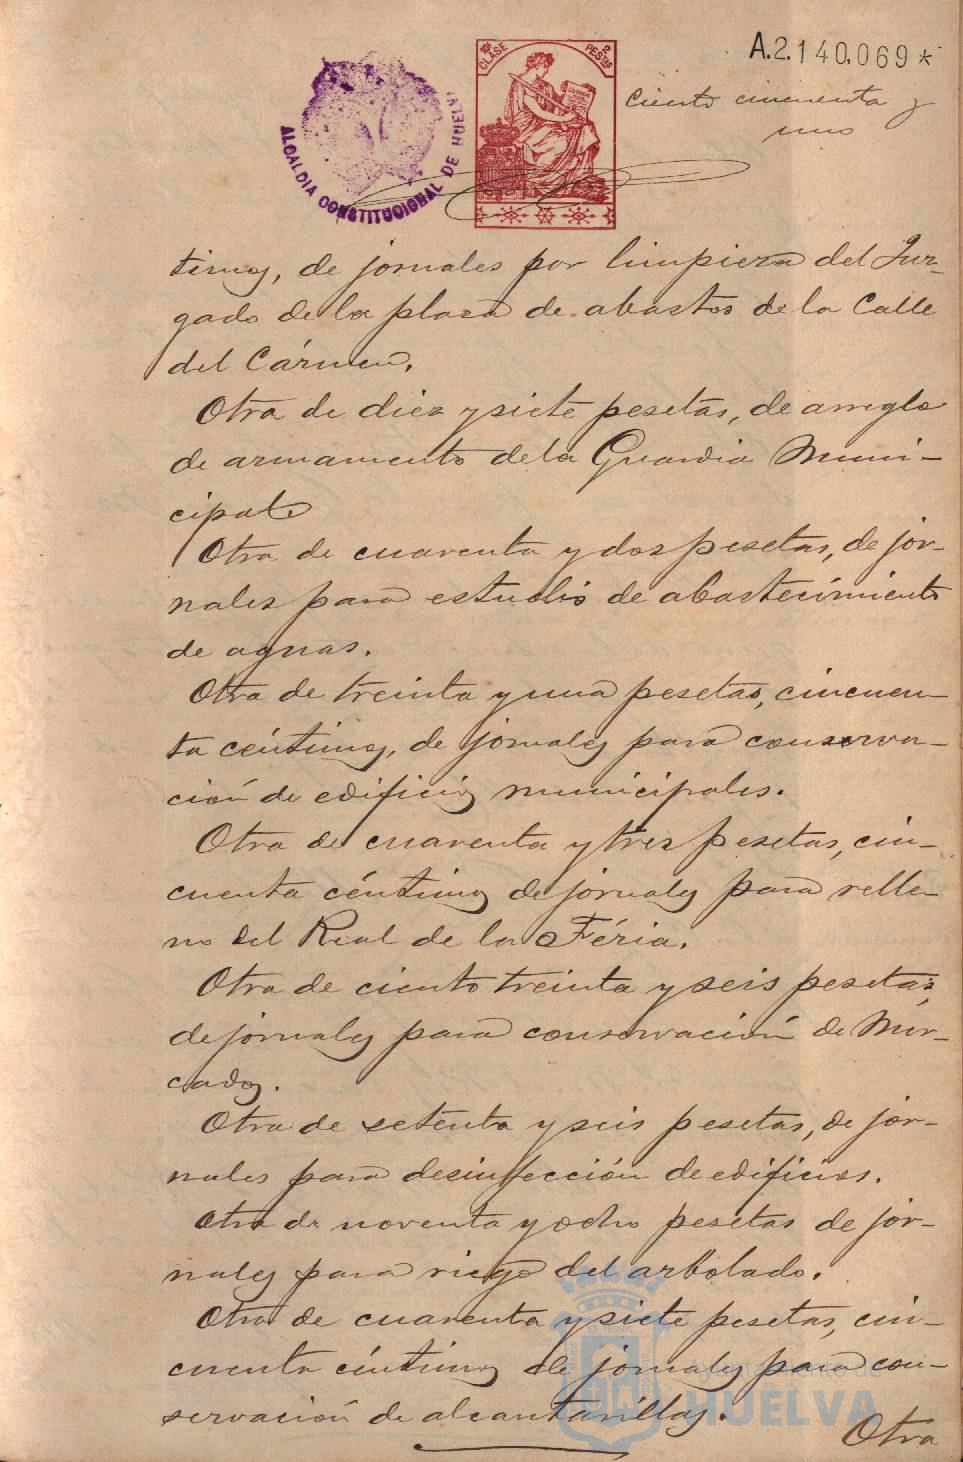 A.2.140,069*
10ª CLASE
2 PESTAS
ALCALDIA CONSTITUCIONAL DE HUELVA
Ciento cincuenta y
uno
timos, de jornales por limpieza del Juz-
gado de la plaza de abastos de la Calle
del Cármen.
Otra de diez y siete pesetas, de arreglo
de armamento de la Guardia Muni-
cipal.
Otra de cuarenta y dos pesetas, de jor-
nales para estudio de abastecimiento
de aguas.
Otra de treinta y una pesetas, cincuen-
ta céntimos, de jornales para conserva-
ción de edificios municipales.
Otra de cuarenta y tres pesetas, cin-
cuenta céntimos de jornales para relle-
no del Real de la Féria.
Otra de ciento treinta y seis pesetas,
de jornales para conservación de Mer-
cados.
Otra de setenta y seis pesetas, de jor-
nales para desinfección de edificios.
Otra de noventa y ocho pesetas de jor-
nales para riego del arbolado.
Otra de cuarenta y siete pesetas, cin-
cuenta céntimos de jornales para con-
servación de alcantarillas.
Otra
Ayuntamiento de
HUELVA